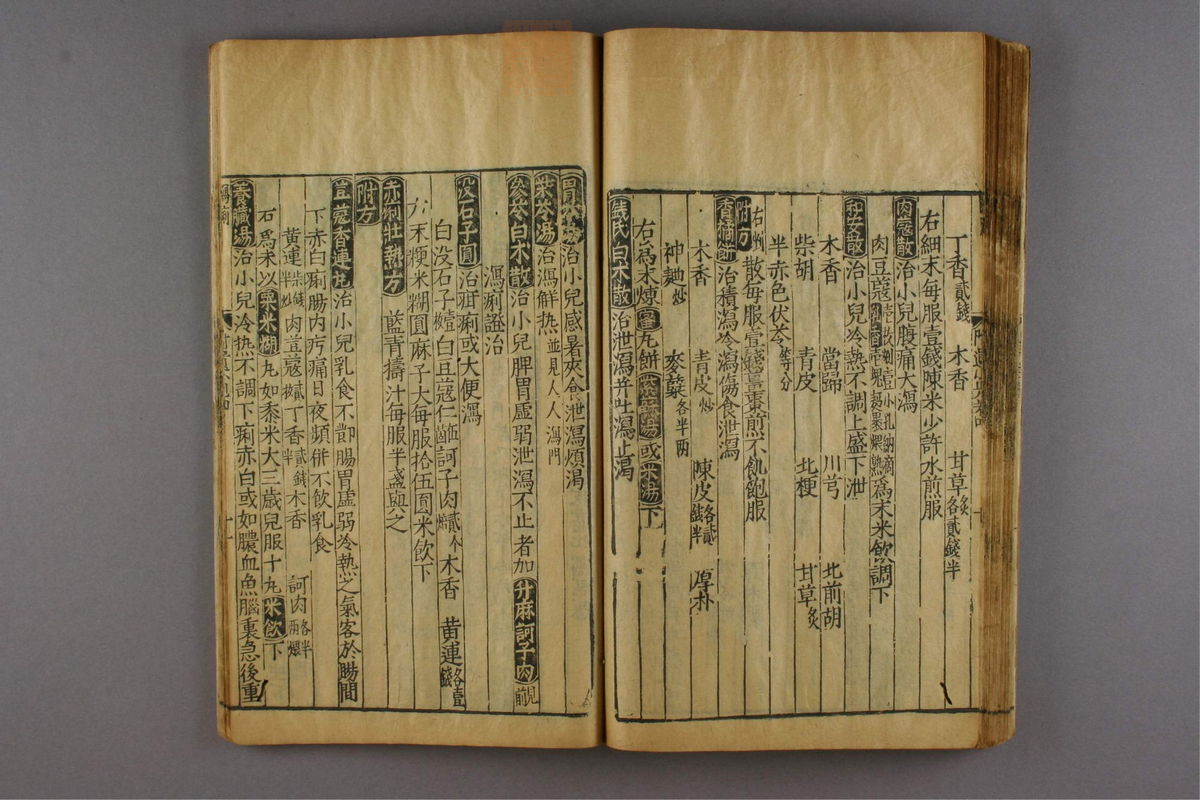 丁香貳錢 木香 甘草炙各貳錢半
右細末每服壹錢陳米少許水煎服
肉蔻散治小兒腹痛大瀉
肉豆蔻壹枚剜壹小孔納滴乳香壹塊麪裹煨熟爲末米飲調下
和安散治小兒冷熱不調上盛下泄
木香 當歸 川芎 北前胡
柴胡 青皮 北梗 甘草炙
半赤色伏苓等分
右㕮散每服壹錢薑棗煎不飢飽服
附方
香補餅治積瀉冷瀉傷食泄瀉
木香 青皮炒 陳皮各貳錢半 厚朴
神麯炒 麥蘖各半兩
右爲末煉蜜丸餅紫蘇湯或米湯下
錢氏白术散治泄瀉并吐瀉止渴
胃苓湯治小兒感暑夾食泄瀉煩渴
柴苓湯治瀉解热並見人人瀉門
參苓白术散治小兒脾胃虛弱泄瀉不止者加升麻訶子肉
瀉痢證治
没石子圓治疳痢或大便瀉
白没石子壹枚 白豆蔻仁伍箇 訶子肉貳个煨 木香 黄連各壹錢
六末粳米糊圓麻子大每服拾伍圓米飲下
赤痢壯热方 藍青擣汁每服半盞與之
附方
豆蔻香連丸治小兒乳食不節腸胃虛弱冷熱之氣客於腸間
下赤白痢腸内疞痛日夜頻併不飲乳食
黄連柒錢半炒 肉荳蔻貳枚 丁香貳錢半 木香 訶肉各半兩煨
右爲末以粟米糊丸如黍米大三歲兒服十丸米飲下
養臟湯治小兒冷热不調下痢赤白或如膿血魚腦裏急後重
瀉痢